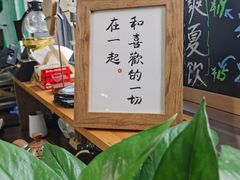 和喜歡的一切
在一起
爽夏饮